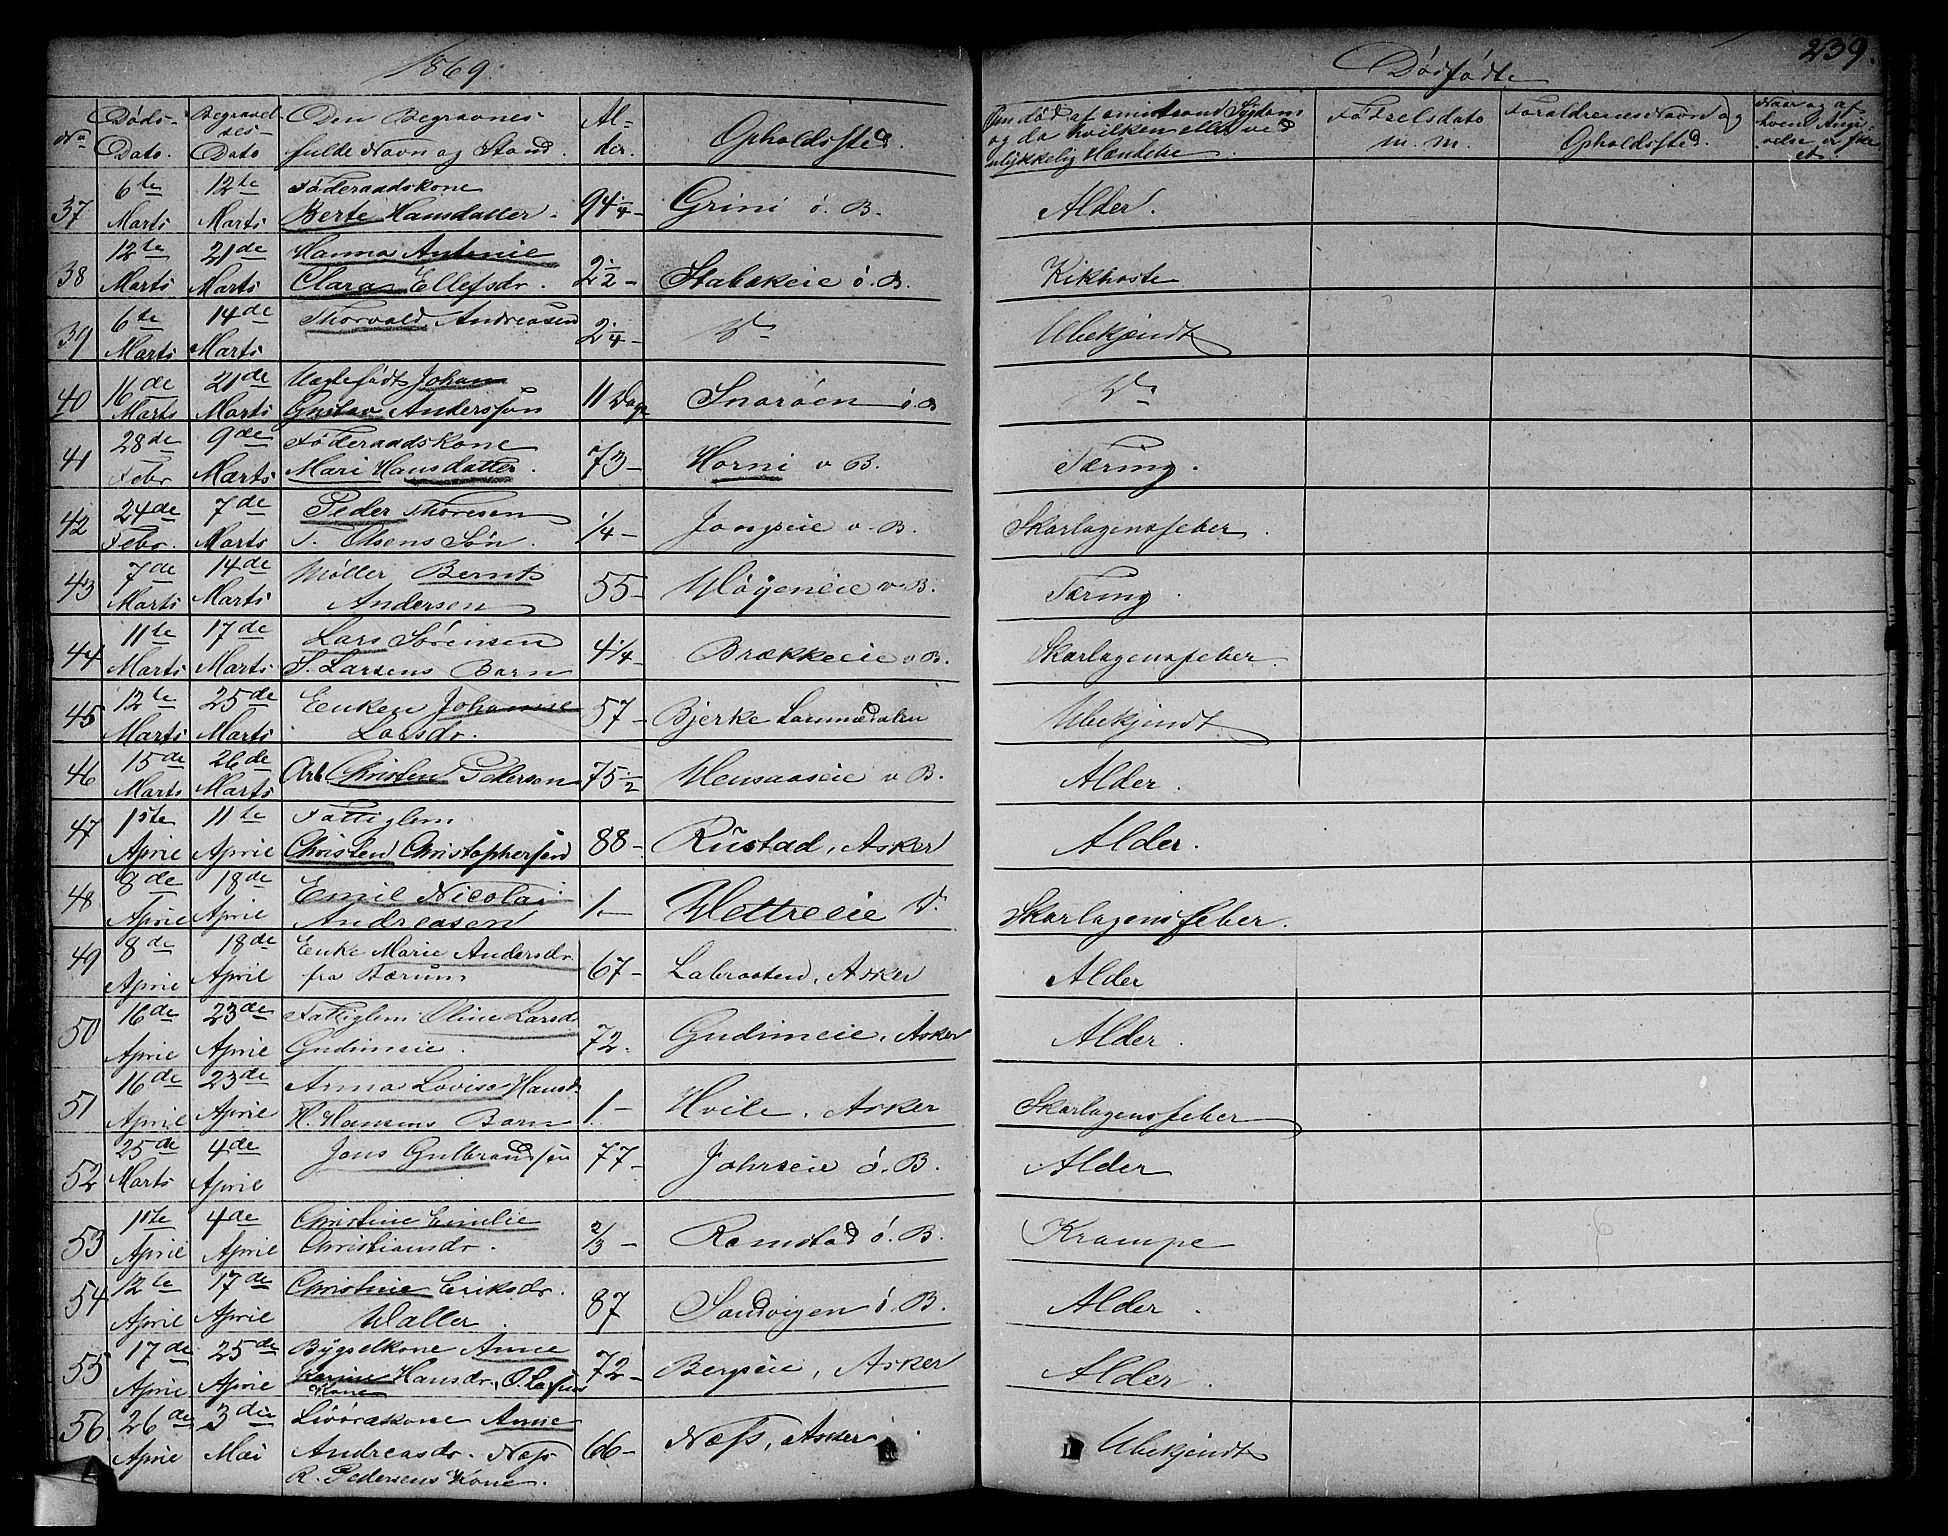 1869.
Dødfødte
239.
No
Døds-
Dato.
Begravel
ses-
Dato
Den Begravnes
fulde Navn og Stand.
Al-
der.
Opholdssted.
Om død af smitsom Sygdom
og da hvilken eller ved
ulykkelig Hændelse.
Fødselsdato
m. m.
Forældrenes Navn og
Opholdssted.
Naar og af
hvem Angi-
velse er ske
et.
37 6te Marts 12te Marts Føderaadskone
Berte Hansdatter. 94 1/4 - Grini ø. B. Alder.
38 12te Marts 21de Marts Hanna Antonie
Clara Ellefsdr. 2 1/2 - Stabækeie ø. B. Kikhoste
39 6te Marts 14de Marts Thorvald Andreasen 2 1/4 - Do Ubekjendt
40 16de Marts 21de Marts Uægtefødt Johan
Gustav Anderssøn 11 Dage Snarøen ø. B Do
41 28de Febr 9de Marts Føderaadskone
Mari Hansdatter. 73 - Horni v B. Tæring.
42 24de Febr. 7de Marts Peder Thoresen
T. Olsens Søn. 1/4 - Jongseie v. B. Skarlagensfeber.
43 7de Marts 14de Marts Møller Bernt
Andersen 55 - Bløgeneie v. B. Tæring.
44 11te Marts 17de Marts Lars Sørensen
S. Larsens Barn 4 1/4 - Brækkeeie v B. Skarlagensfeber.
45 12te Marts 25de Marts Enken Johanne
Larsdr. 57 - Bjerke Lommedalen Ubekjendt
46 15de Marts 26de Marts Arb Christen Pedersen 75 1/2 - v B. Alder.
47 1ste April 11te April Fattiglem
Christen Christophersen 88 - Rustad, Asker Alder.
48 8de April 18de April Emil Nicolai
Andreasen 1. - Wettreeie A. Skarlagensfeber.
49 8de April 18de April Enke Marie Andersdr
fra Bærum 67 - Labraaten, Asker Alder
50 16de April 23de April Fattiglem Oline Larsd
Gudimeie. 72. Gudimeie, Asker Alder.
51 16de April 23de April Anna Lovise Hansd
H. Hansens Barn 1. - Hvile, Asker Skarlagensfeber
52 25de Marts 4de April Jens Gulbrandsøn 77 - Johrseie ø. B. Alder
53 1ste April 4de April Christine Emilie
Christiansdr. 2/3 - Ramstad ø. B. Krampe
54 12te April 17de April Christine Eriksdr.
Waller. 87 Sandvigen ø. B. Alder.
55 17de April 25de April Bygselkone Anne
Karine Hansdr. O. Larsens
Kone 72 - Bergseie, Asker Alder.
56 26de April 3die Mai Livørekone Anne
Andreasdr. Næs
R. Pedersens Kone. 66 - Næss, Asker Ubekjendt